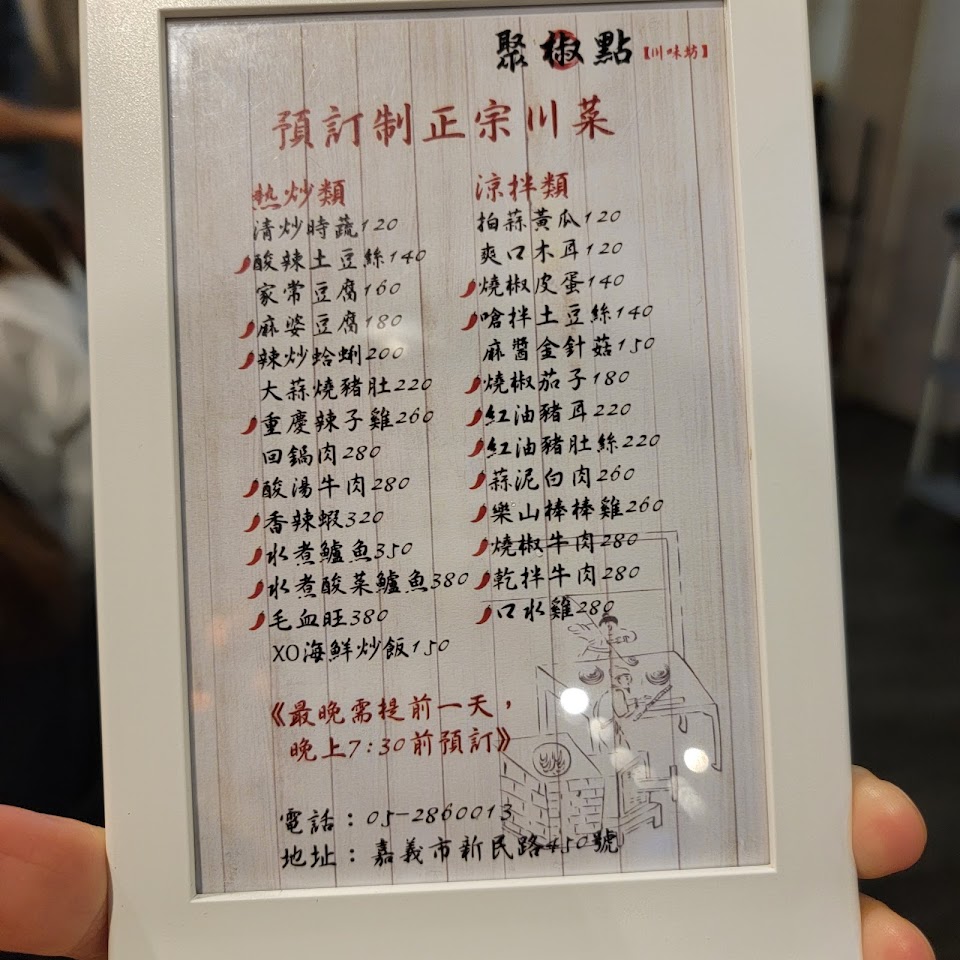 聚椒點【川味坊】
預訂制正宗川菜
熱炒類
清炒時蔬120
酸辣土豆絲140
家常豆腐160
麻婆豆腐180
辣炒蛤蜊200
大蒜燒豬肚220
重慶辣子雞260
回鍋肉280
酸湯牛肉280
香辣蝦320
水煮鱸魚350
水煮酸菜鱸魚380
毛血旺380
XO海鮮炒飯150
涼拌類
拍蒜黃瓜120
爽口木耳120
燒椒皮蛋140
嗆拌土豆絲140
麻醬金針菇150
燒椒茄子180
紅油豬耳220
紅油豬肚絲220
蒜泥白肉260
樂山棒棒雞260
燒椒牛肉280
乾拌牛肉280
口水雞280
《最晚需提前一天，
晚上7:30前預訂》
電話：05-2860013
地址：嘉義市新民路450號